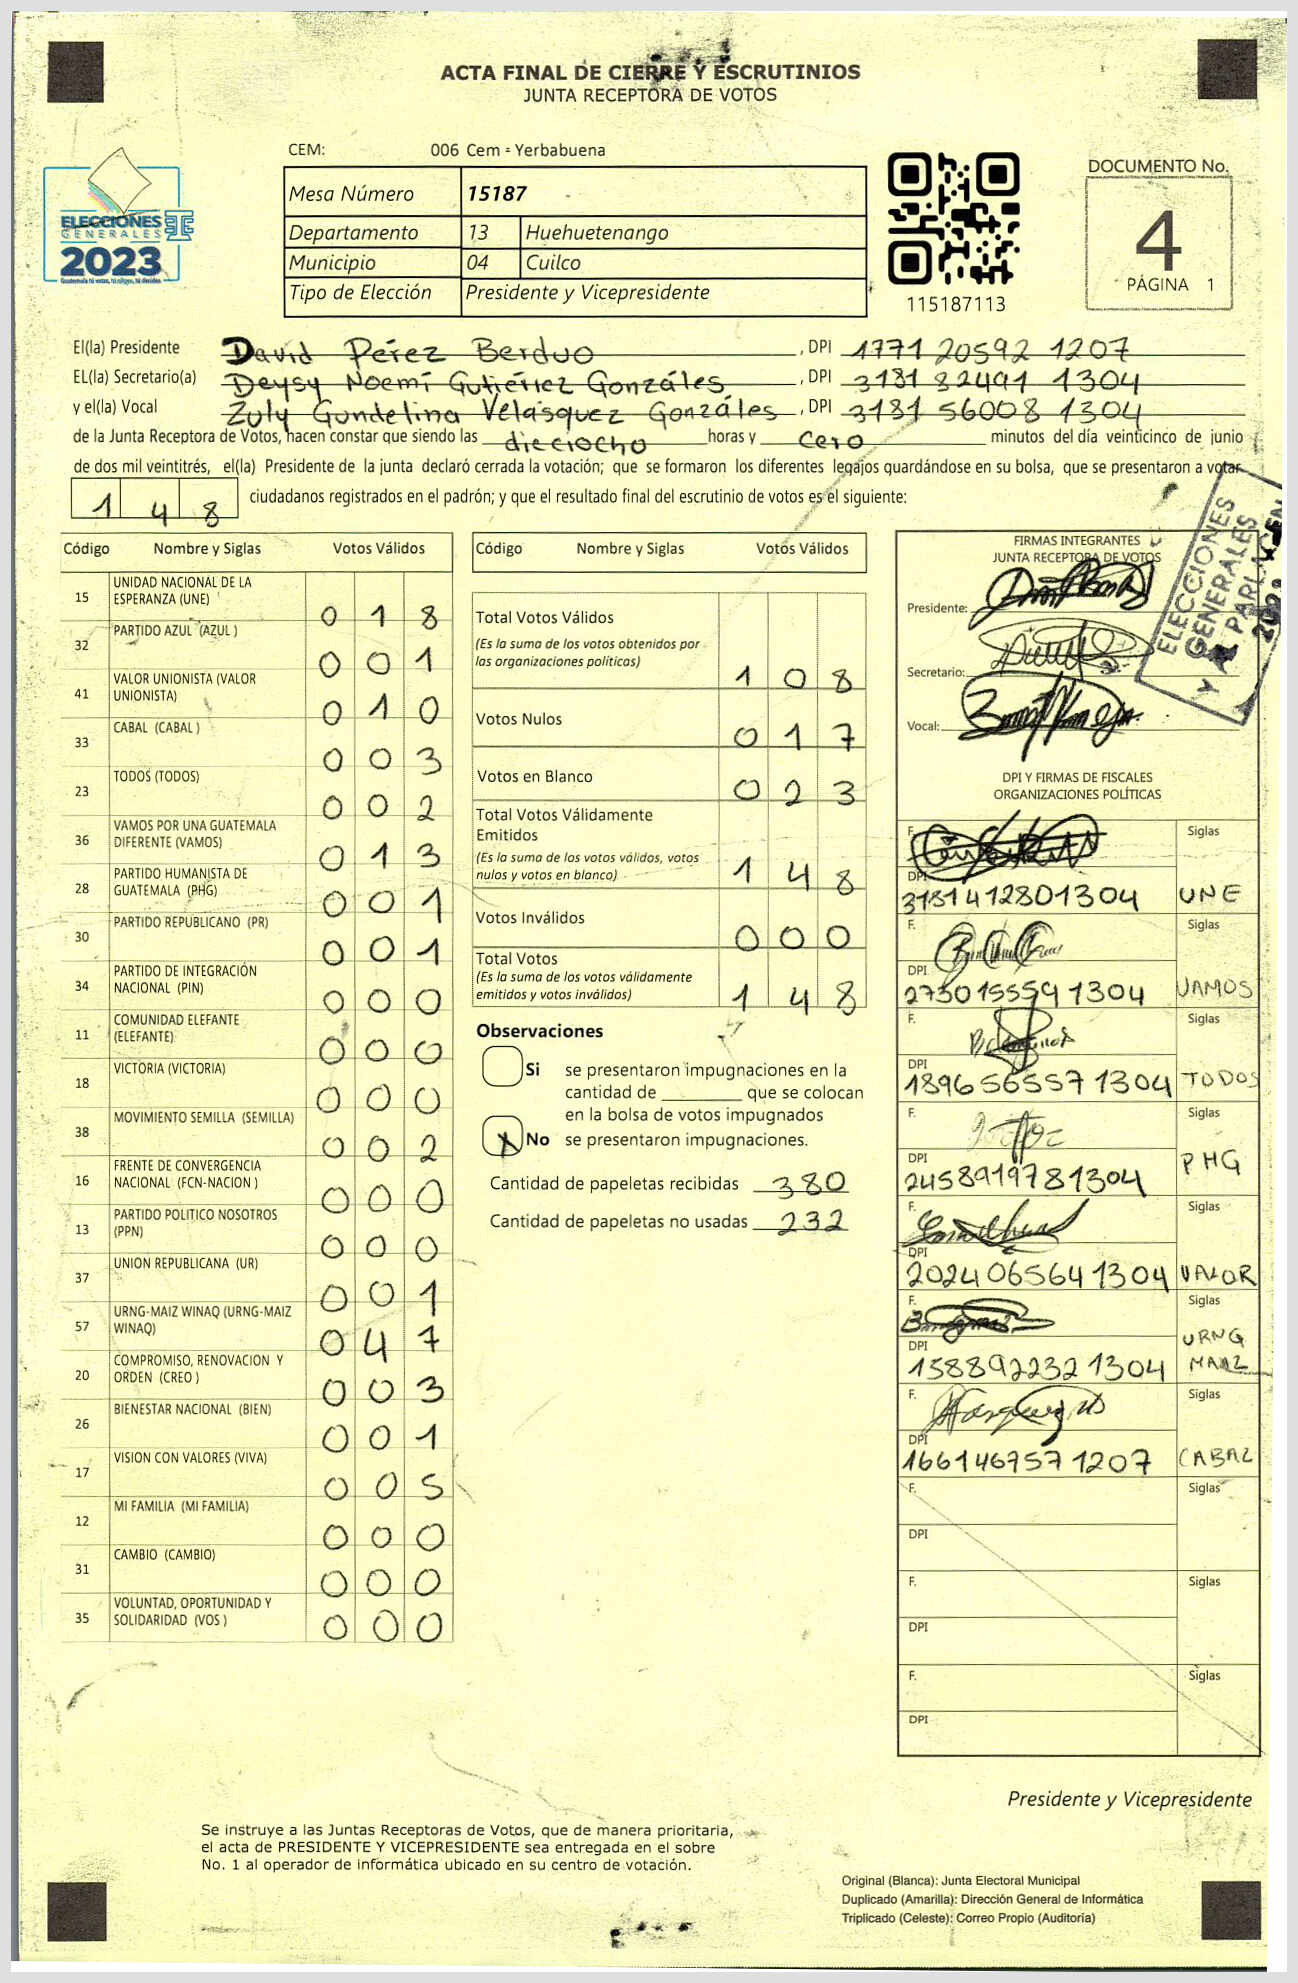 ACTA FINAL DE CIERRE Y ESCRUTINIOS
JUNTA RECEPTORA DE VOTOS
CEM: 006 Cem - Yerbabuena
Mesa Número 15187
Departamento 13 Huehuetenango
Municipio 04 Cuilco
Tipo de Elección Presidente y Vicepresidente
ELECCIONES
GENERALES
2023
115187113
DOCUMENTO No.
4
PÁGINA 1
El(la) Presidente David Pérez Berduo, DPI 1771 20592 1207
EL(la) Secretario(a) Deysy Noemí Gutiérrez Gonzáles, DPI 3181 82491 1304
y el(la) Vocal Zuly Gundelina Velásquez Gonzáles, DPI 3181 56008 1304
de la Junta Receptora de Votos, hacen constar que siendo las dieciocho horas y cero minutos del día veinticinco de junio
de dos mil veintitrés, el(la) Presidente de la junta declaró cerrada la votación; que se formaron los diferentes legajos guardándose en su bolsa, que se presentaron a votar
148 ciudadanos registrados en el padrón; y que el resultado final del escrutinio de votos es el siguiente:
Código Nombre y Siglas Votos Válidos
15 UNIDAD NACIONAL DE LA ESPERANZA (UNE) 018
32 PARTIDO AZUL (AZUL ) 001
41 VALOR UNIONISTA (VALOR UNIONISTA) 010
33 CABAL (CABAL ) 003
23 TODOS (TODOS) 002
36 VAMOS POR UNA GUATEMALA DIFERENTE (VAMOS) 013
28 PARTIDO HUMANISTA DE GUATEMALA (PHG) 001
30 PARTIDO REPUBLICANO (PR) 001
34 PARTIDO DE INTEGRACIÓN NACIONAL (PIN) 000
11 COMUNIDAD ELEFANTE (ELEFANTE) 000
18 VICTORIA (VICTORIA) 000
38 MOVIMIENTO SEMILLA (SEMILLA) 002
16 FRENTE DE CONVERGENCIA NACIONAL (FCN-NACION ) 000
13 PARTIDO POLITICO NOSOTROS (PPN) 000
37 UNION REPUBLICANA (UR) 001
57 URNG-MAIZ WINAQ (URNG-MAIZ WINAQ) 047
20 COMPROMISO, RENOVACION Y ORDEN (CREO ) 003
26 BIENESTAR NACIONAL (BIEN) 001
17 VISION CON VALORES (VIVA) 005
12 MI FAMILIA (MI FAMILIA) 000
31 CAMBIO (CAMBIO) 000
35 VOLUNTAD, OPORTUNIDAD Y SOLIDARIDAD (VOS ) 000
Código Nombre y Siglas Votos Válidos
Total Votos Válidos
(Es la suma de los votos obtenidos por
las organizaciones políticas) 108
Votos Nulos 017
Votos en Blanco 023
Total Votos Válidamente
Emitidos
(Es la suma de los votos válidos, votos
nulos y votos en blanco) 148
Votos Inválidos 000
Total Votos
(Es la suma de los votos válidamente
emitidos y votos inválidos) 148
Observaciones
Si se presentaron impugnaciones en la
cantidad de ________ que se colocan
en la bolsa de votos impugnados
X No se presentaron impugnaciones.
Cantidad de papeletas recibidas 380
Cantidad de papeletas no usadas 232
FIRMAS INTEGRANTES
JUNTA RECEPTORA DE VOTOS
Presidente:
Secretario:
Vocal:
ELECCIONES
GENERALES
Y AL PARLACEN
2023
DPI Y FIRMAS DE FISCALES
ORGANIZACIONES POLÍTICAS
F. Siglas
DPI 3181412801304 UNE
F. Siglas
DPI 2730155591304 VAMOS
F. Siglas
DPI 1896565571304 TODOS
F. Siglas
DPI 2458919781304 PHG
F. Siglas
DPI 2024065641304 VALOR
F. Siglas
DPI 1588922321304 URNG MAIZ
F. Siglas
DPI 1661467571207 CABAL
F. Siglas
DPI
F. Siglas
DPI
F. Siglas
DPI
Presidente y Vicepresidente
Se instruye a las Juntas Receptoras de Votos, que de manera prioritaria,
el acta de PRESIDENTE Y VICEPRESIDENTE sea entregada en el sobre
No. 1 al operador de informática ubicado en su centro de votación.
Original (Blanca): Junta Electoral Municipal
Duplicado (Amarilla): Dirección General de Informática
Triplicado (Celeste): Correo Propio (Auditoría)